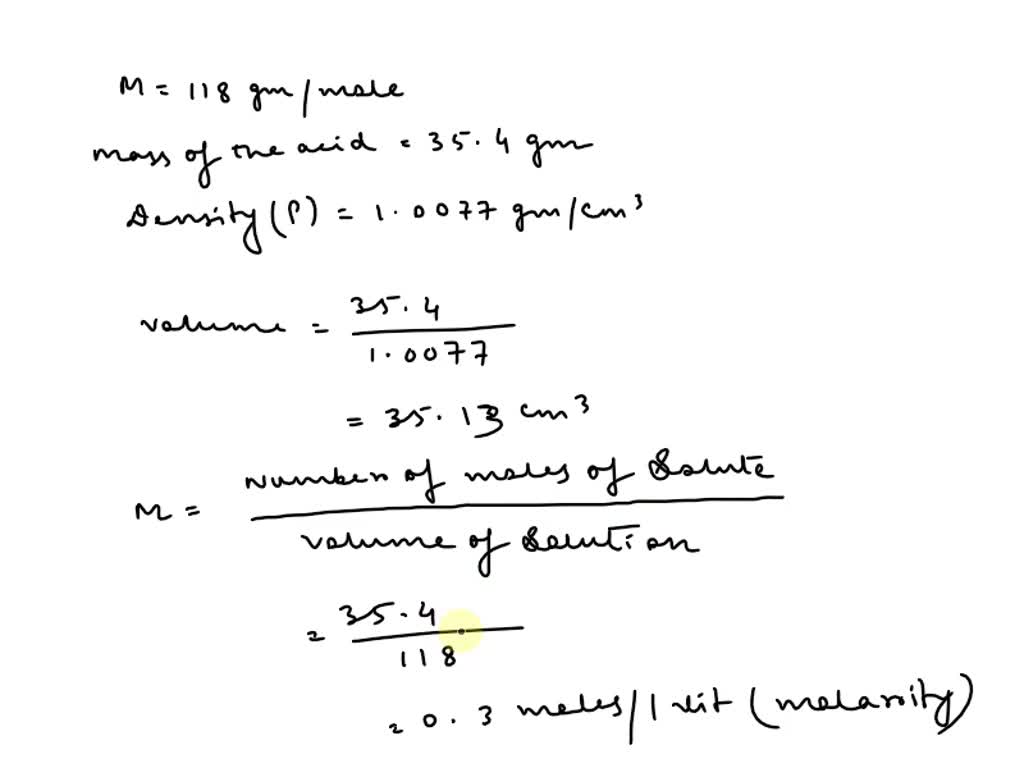 M = 118 gm/mole
mass of the acid = 35.4 gm
Density (ρ) = 1.0077 gm/cm³
volume = 35.4 / 1.0077
= 35.13 cm³
M = Number of moles of Solute / volume of Solution
= 35.4 / 118
= 0.3 moles/1 lit (molarity)